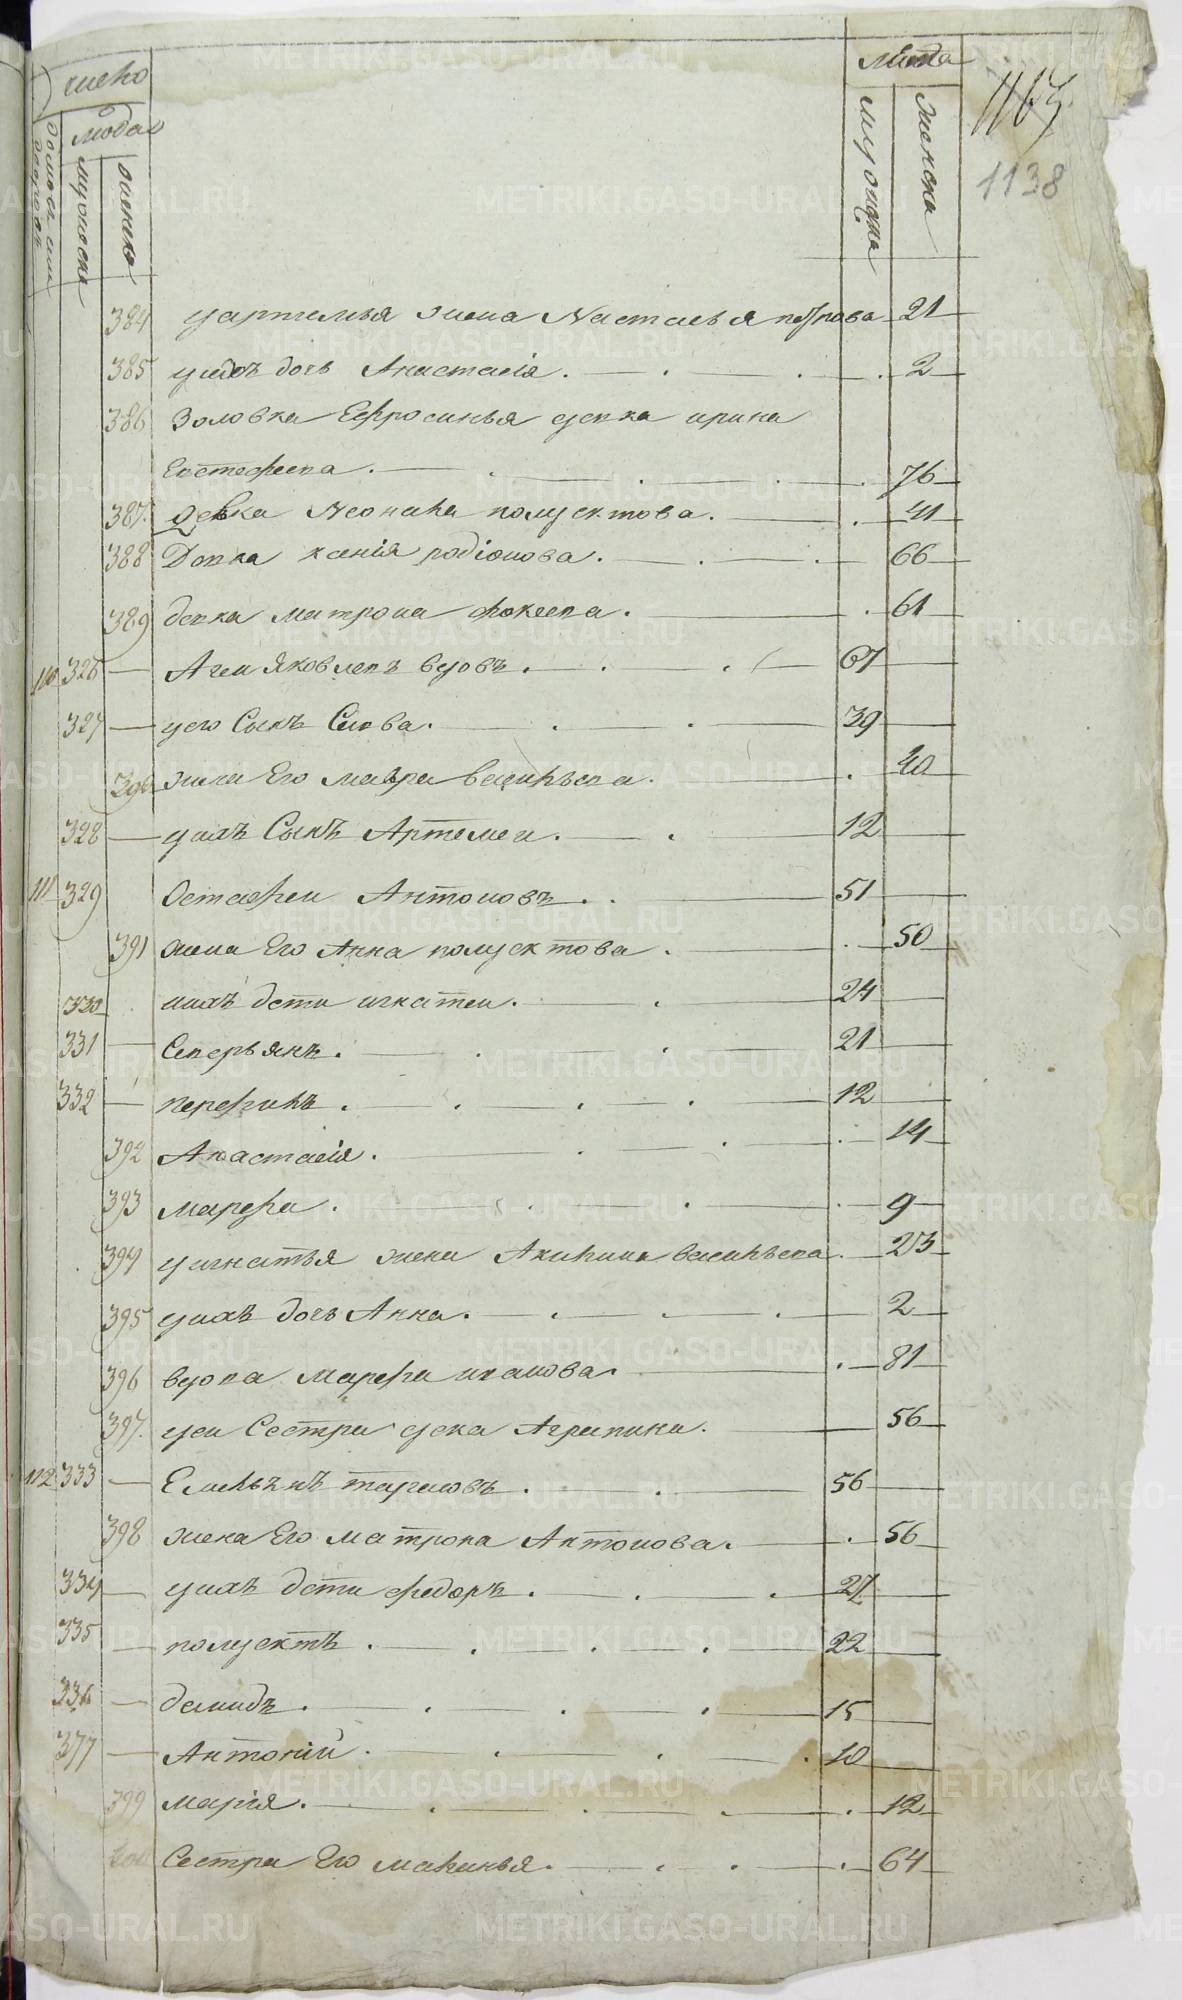 число
людей
мужеска
женска
лета
мужска
женска
1138
384 жена Настасья петрова 21
385 унихъ дочь Анастасiя 2
386 Золовка Ефросинья девка ирина
Евстефеева 76
387 девка Леонила полуектова 41
388 Девка ксенiя родiонова 66
389 девка матрона фокеева 61
110 326 Агеи яковлевъ вдовъ 67
327 уего Сынъ Савва 39
390 жена Его мавра васильева 40
328 унихъ Сынъ Артемеи 12
111 329 Остафеи Антоновъ 51
391 жена Его Анна полуектова 50
330 унихъ дети игнатеи 24
331 Северьянъ 21
332 перфилъ 12
392 Анастасiя 14
393 марфа 9
394 уигнатья жена Акилина васильева 23
395 унихъ дочь Анна 2
396 вдова марфа иванова 81
397 уеи Сестра девка Агрипина 56
112 333 Емельянъ тарасовъ 56
398 жена Его матрона Антонова 56
334 унихъ дети федоръ 27
335 полуектъ 22
336 демидъ 15
377 Антонiй 10
399 марiя 12
400 Сестра Его маланья 64
METRIKI.GASO-URAL.RU